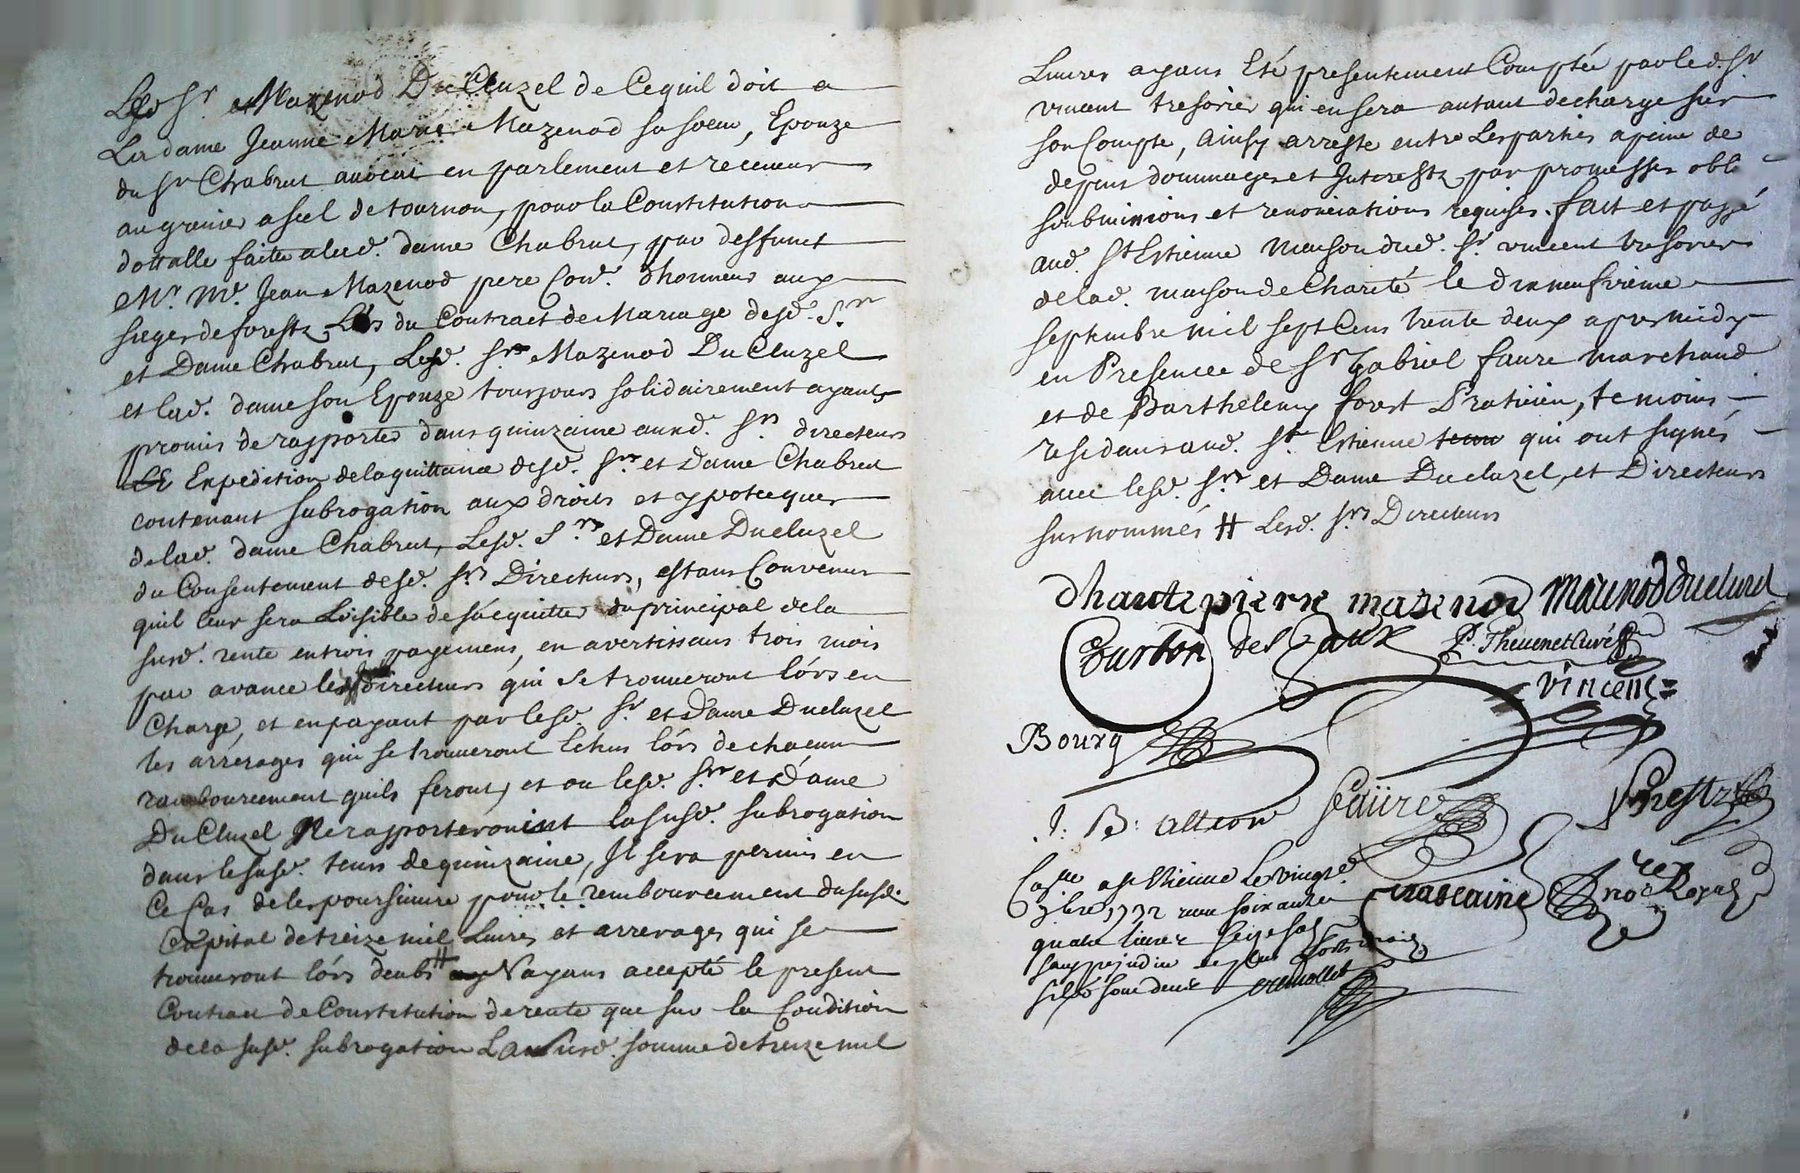 Led Sr Mazenod Du Cluzel de Cequil doit a
La dame Jeanne Marie Mazenod sa soeur, Epouze
du Sr Chabrut avocat en parlement et receveur
au grenier a sel de tournon, pour la Constitution
dottalle faitte alad. dame Chabrut, par deffunct
Mr Me. Jean Mazenod pere Conr. dhonneur aux
sieges de forestz Lors du Contract de Mariage desd. Srs
et Dame Chabrut, Lesd. Srs Mazenod Du Cluzel
et lad. dame son Epouze tousjours solidairement ayants
promis de rapporter dans quinzaine auxd. Srs directeurs
Expedition de la quittance desd. Srs et Dame Chabrut
contenant subrogation aux droits et ypotecques
delad. dame Chabrut, Lesd. Srs et Dame Ducluzel
du Consentement desd. Srs Directeurs, estans Convenus
quil leur sera Loisible de sacquitter du principal de la
susd. rente en trois payemens, en avertissans trois mois
par avance les directeurs qui se trouveront lórs en
Charge, et en payant par lesd. Sr et Dame Ducluzel
les arrerages qui se trouveront Echus lórs de chacun
rambourcement quils feront, et ou lesd. Srs et Dame
Du Cluzel Ne rapporteroint la susd. subrogation
dans le susd. tems de quinzaine, Il sera permis en
Ce Cas de les poursuivre pour le rembourcement du susd.
Capital de treize mil Livres et arrerages qui se
trouveront lórs deubs # Nayans accepté le present
Contract de Constitution de rente que sur la Condition
de la susd. subrogation La susd. somme de treize mil
Livres ayans Eté presentement Comptée par led. Sr
vincent tresorier qui en sera autant decharge sur
son Compte, Ainsy arreste entre Les parties a peine de
depens dommages et Interestz par promesses obli
soubmissions et renonciations requises. fait et passé
aud. St Estienne Maison dud. Sr vincent tresorier
delad. maison de Charité le dixneufvieme
septembre mil sept Cens trente deux apres midy
en Presence de Sr Gabriel faure marchand
et de Barthelemy forest Praticien, temoins
residans aud. St. Estienne qui ont signés
avec lesd. Srs et Dame Ducluzel, et Directeurs
surnommés # Lesd. Srs Directeurs
dhautepierre mazenod Mazenod ducluzel
Courbon des Gaux P. Thevenet Curé
vincent
Bourg
J: B: alleon faure forestz
Con.lle a St Etienne Le vingt
7bre 1732 reçu soixante
quatre livres seize sols
sauf prejudice
signé